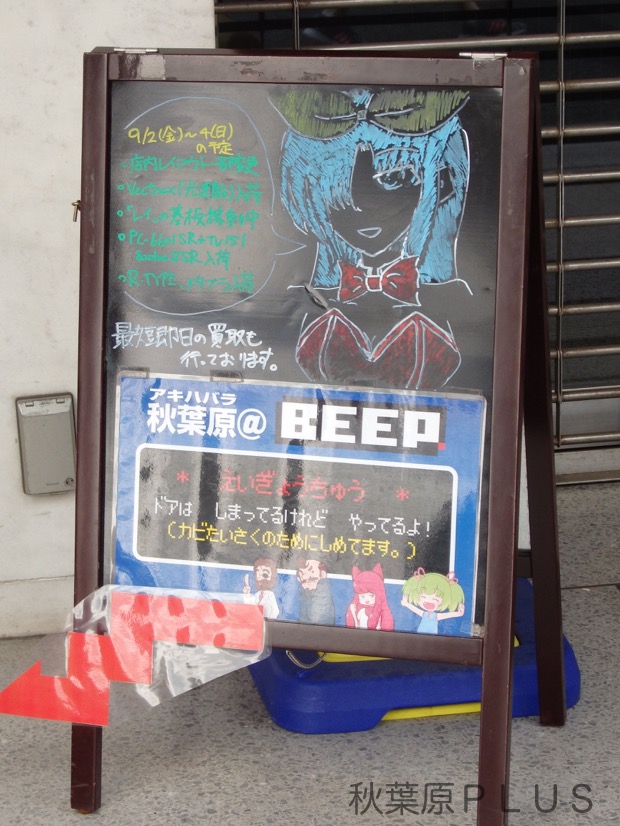 9/2(金)〜4(日)
の予定
・店内レイアウト一部変更
・Vectrex(光速船)入荷
・の基板稼働中
・PC-6601SR+TV151
SR入荷
・R-TYPE、入荷
最短即日の買取も
行っております。
アキハバラ
秋葉原@ BEEP.
* えいぎょうちゅう *
ドアは しまってるけれど やってるよ!
(カビたいさくのためにしめてます。)
秋葉原PLUS